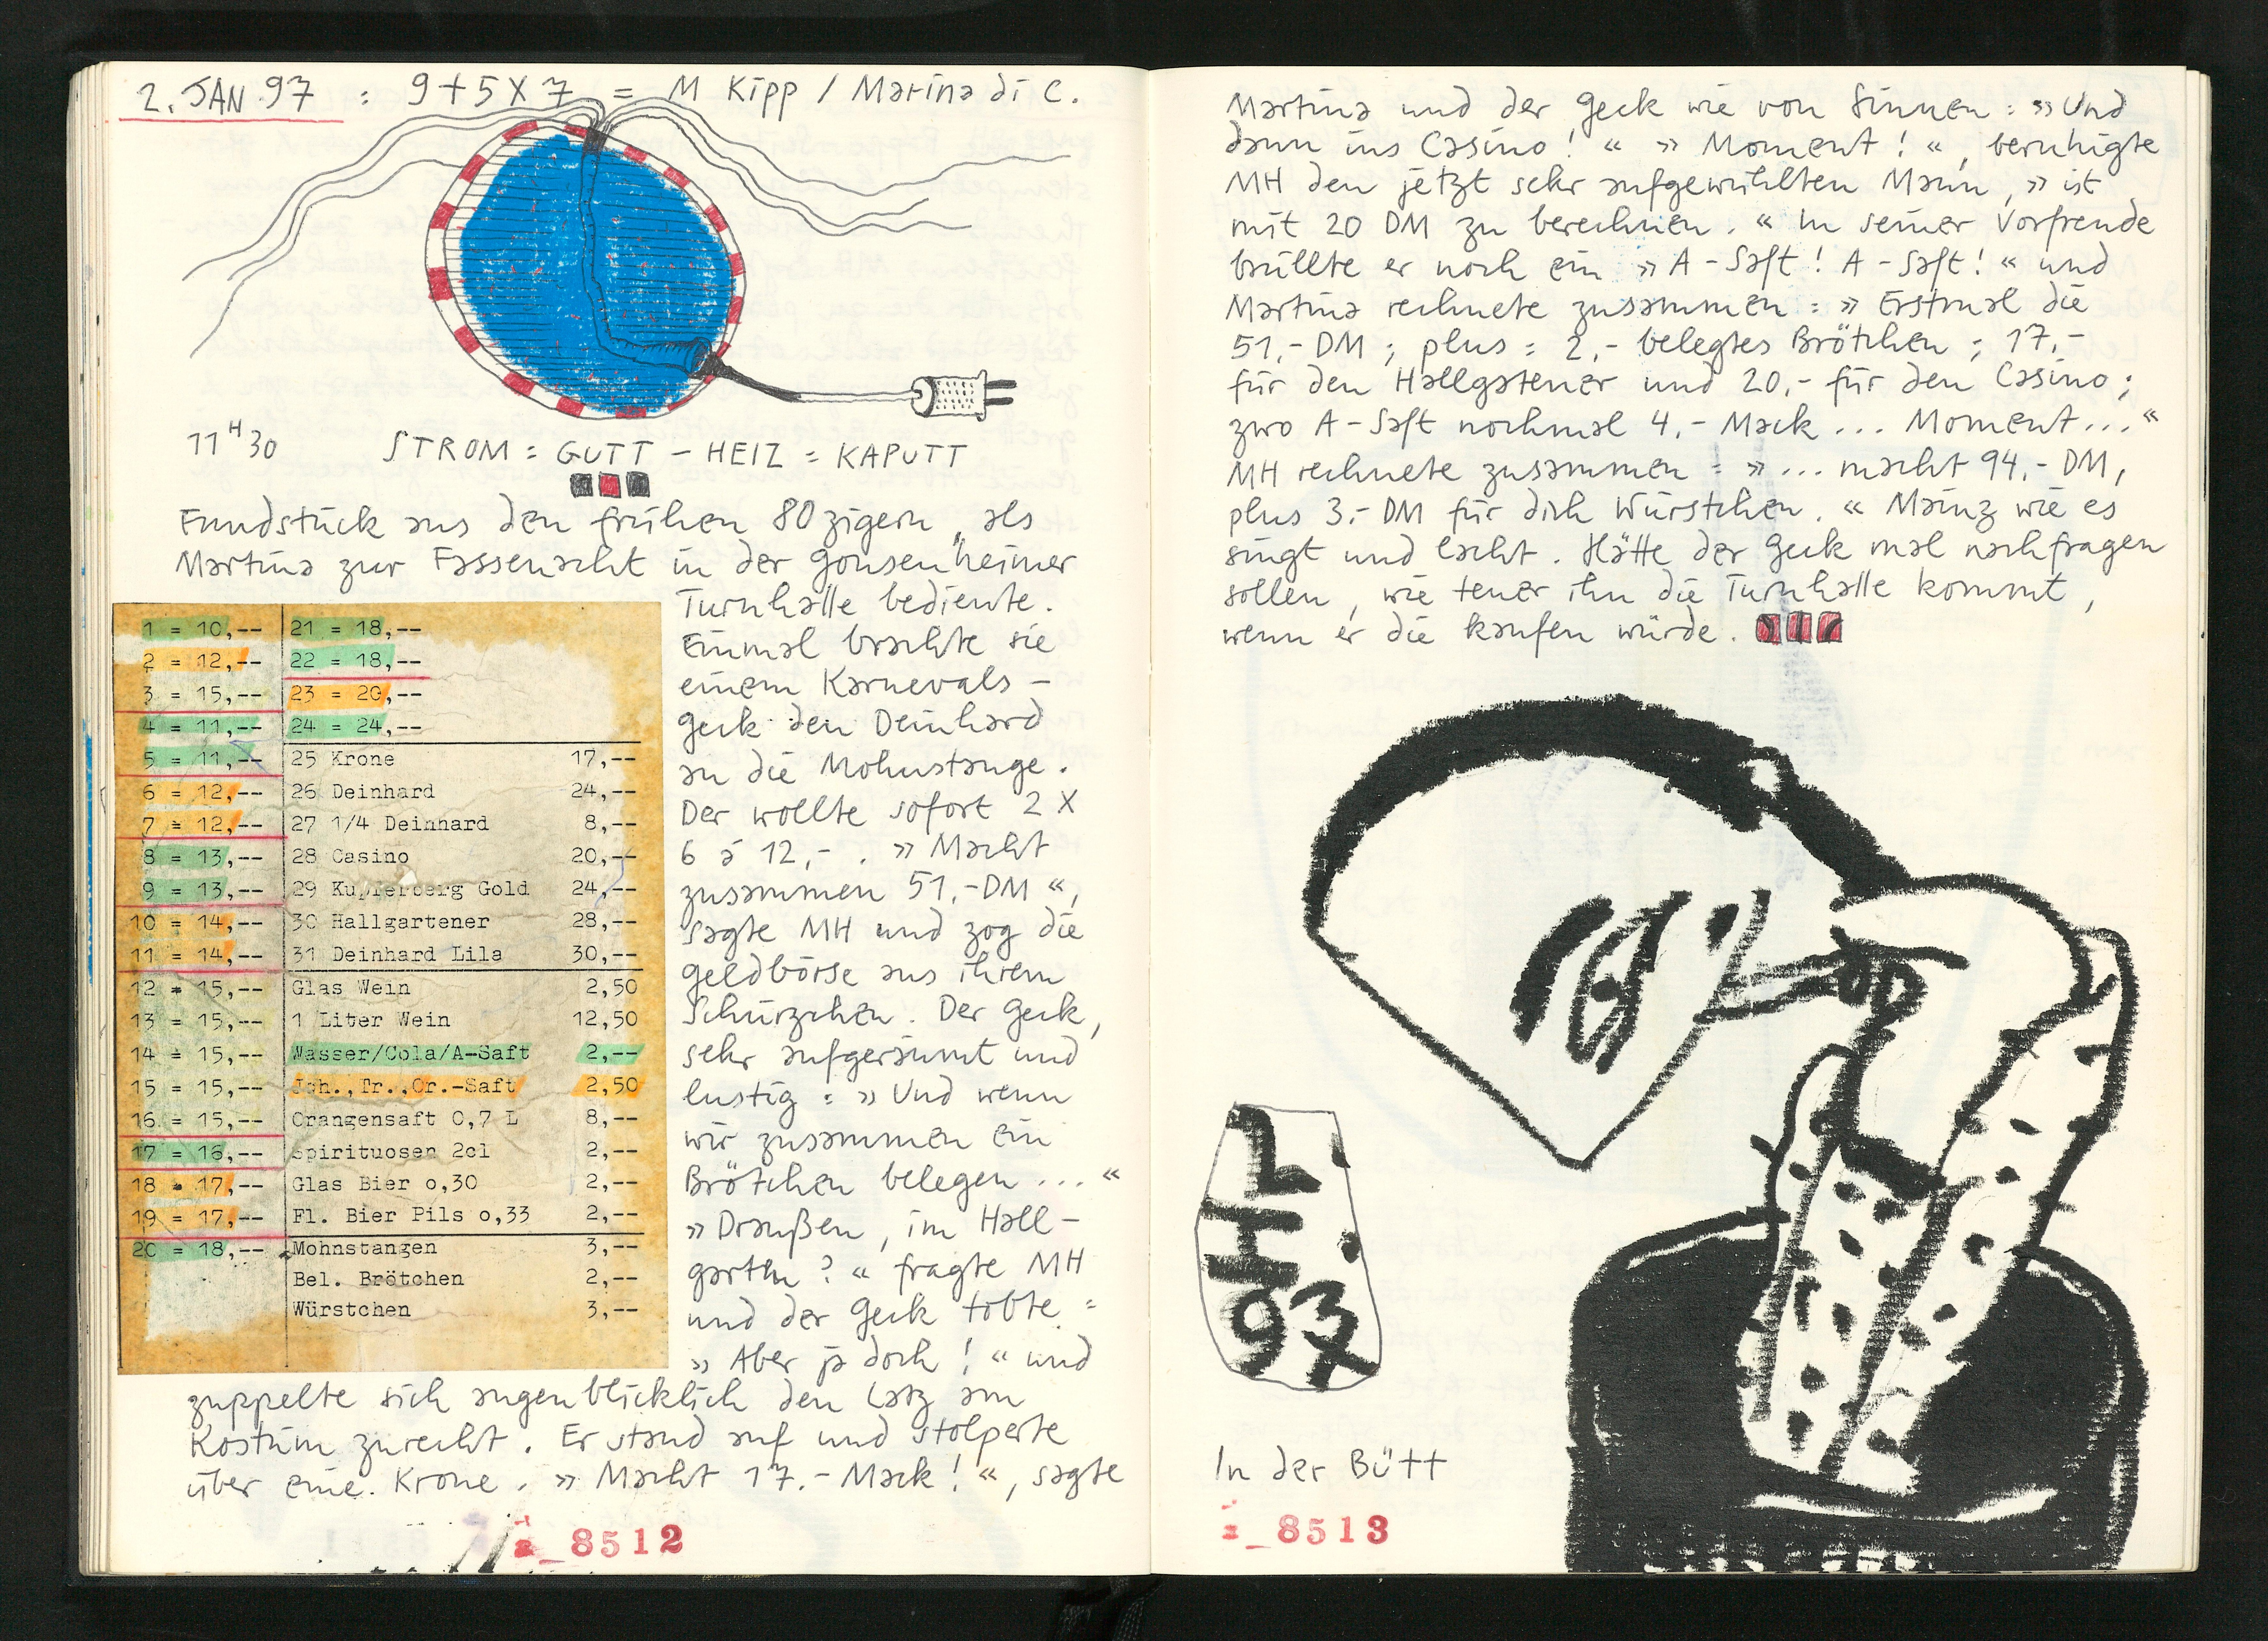 2. JAN 97 : 9+5X7 = M Kipp / Marina di C.
11 H 30 STROM : GUTT – HEIZ : KAPUTT
Fundstück aus den frühen 80zigern, als
Martina zur Fassenacht in der Gonsenheimer
Turnhalle bediente.
Einmal brachte sie
einem Karnevals-
geck den Deinhard
an die Mohnstange.
Der wollte sofort 2 X
6 à 12,- . » Macht
zusammen 51,-DM «,
sagte MH und zog die
Geldbörse aus ihrem
Schürzchen. Der Geck,
sehr aufgeräumt und
lustig : » Und wenn
wir zusammen ein
Brötchen belegen ... «
» Draußen, im Hall-
garten? « fragte MH
und der Geck tobte :
» Aber ja doch ! « und
zuppelte sich augenblicklich den Latz am
Kostüm zurecht. Er stand auf und stolperte
über eine Krone. » Macht 17.- Mack ! «, sagte
1 = 10,-- 21 = 18,--
2 = 12,-- 22 = 18,--
3 = 15,-- 23 = 20,--
4 = 11,-- 24 = 24,--
5 = 11,-- 25 Krone 17,--
6 = 12,-- 26 Deinhard 24,--
7 = 12,-- 27 1/4 Deinhard 8,--
8 = 13,-- 28 Casino 20,--
9 = 13,-- 29 Kupferberg Gold 24,--
10 = 14,-- 30 Hallgartener 28,--
11 = 14,-- 31 Deinhard Lila 30,--
12 = 15,-- Glas Wein 2,50
13 = 15,-- 1 Liter Wein 12,50
14 = 15,-- Wasser/Cola/A-Saft 2,--
15 = 15,-- Joh.,Tr.,Or.-Saft 2,50
16 = 15,-- Orangensaft 0,7 L 8,--
17 = 16,-- Spirituosen 2cl 2,--
18 = 17,-- Glas Bier o,30 2,--
19 = 17,-- Fl. Bier Pils o,33 2,--
20 = 18,-- Mohnstangen 3,--
Bel. Brötchen 2,--
Würstchen 3,--
8512
Martina und der Geck wie von Sinnen : » Und
dann ins Casino ! « » Moment ! «, beruhigte
MH den jetzt sehr aufgewühlten Mann, » ist
mit 20 DM zu berechnen. « In seiner Vorfreude
brüllte er noch ein » A-Saft ! A-Saft ! « und
Martina rechnete zusammen : » Erstmal die
51,- DM ; plus : 2,- belegtes Brötchen ; 17,-
für den Hallgatener und 20,- für den Casino ;
zwo A-Saft nochmal 4,- Mack ... Moment ... «
MH rechnete zusammen : » ... macht 94,- DM,
plus 3,- DM für dich Würstchen. « Mainz wie es
singt und lacht. Hätte der Geck mal nachfragen
sollen, wie teuer ihn die Turnhalle kommt,
wenn er die kaufen würde.
93
In der Bütt
8513